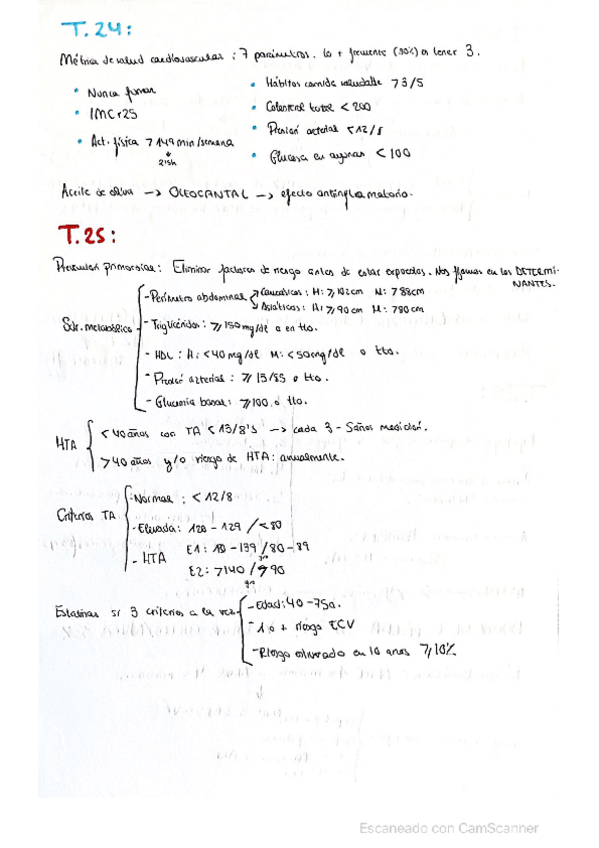 T.24:
Métrica de salud cardiovascular: 7 parámetros. Lo + frecuente (30%) es tener 3.
• Nunca fumar
• IMC < 25
• Act. física > 149 min/semana
2'5h
• Hábitos comida saludable > 3/5
• Colesterol total < 200
• Presión arterial < 12/8
• Glucosa en ayunas < 100
Aceite de oliva → OLEOCANTAL → efecto antiinflamatorio.
T.25:
Prevención primordial: Eliminar factores de riesgo antes de estar expuestos. Nos fijamos en los DETERMI-
NANTES.
Sdr. metabólico
- Perímetro abdominal
Caucásicos: H: ≥ 102cm M: > 88cm
Asiáticos: H: ≥ 90cm M: > 80cm
- Triglicéridos: ≥ 150 mg/dl o en tto.
- HDL: H: < 40 mg/dl M: < 50 mg/dl o tto.
- Presión arterial: ≥ 13/85 o tto.
- Glucemia basal: ≥ 100 o tto.
HTA
< 40 años con TA < 13/8'5 → cada 3-5 años medición.
> 40 años y/o riesgo de HTA: anualmente.
Criterios TA
- Normal: < 12/8
- Elevada: 120 - 129 / < 80
- HTA E1: 130 - 139 / 80 - 89
E2: > 140 / > 90
Estatinas si 3 criterios a la vez
- Edad: 40 - 75a.
- 1 o + riesgo ECV
- Riesgo estimado en 10 años ≥ 10%
Escaneado con CamScanner